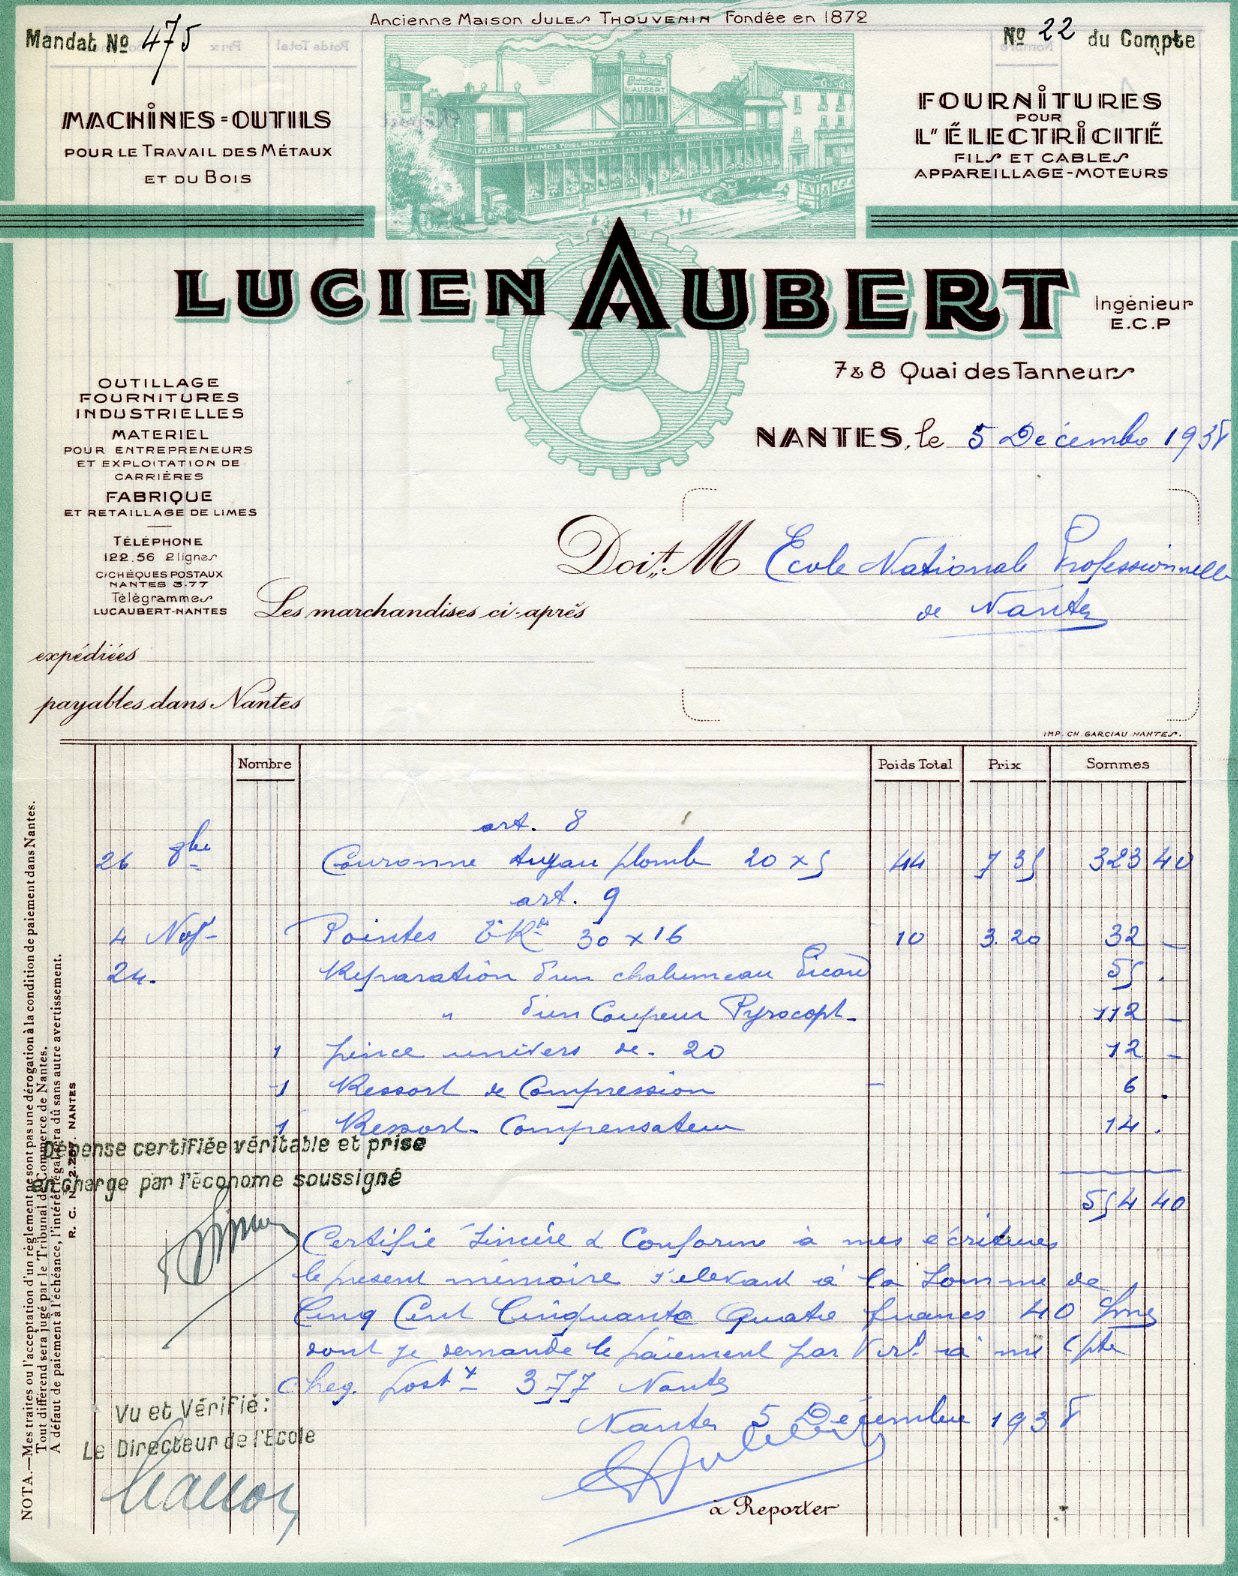 Ancienne Maison Jules Thouvenin Fondée en 1872
Mandat No 475
No 22 du Compte
MACHINES-OUTILS
POUR LE TRAVAIL DES MÉTAUX
ET DU BOIS
FOURNITURES
POUR
L'ÉLECTRICITÉ
FILS ET CABLES
APPAREILLAGE-MOTEURS
LUCIEN AUBERT
Ingénieur
E.C.P
7 & 8 Quai des Tanneurs
OUTILLAGE
FOURNITURES
INDUSTRIELLES
MATERIEL
POUR ENTREPRENEURS
ET EXPLOITATION DE
CARRIÈRES
FABRIQUE
ET RETAILLAGE DE LIMES
TÉLÉPHONE
122.56 2 lignes
C/CHÈQUES POSTAUX
NANTES 3.77
Télégrammes
LUCAUBERT-NANTES
NANTES, le 5 Décembre 1938
Doit M Ecole Nationale Professionnelle
de Nantes
Les marchandises ci-après
expédiées
payables dans Nantes
IMP. CH. GARCIAU NANTES.
Nombre Poids Total Prix Sommes
art. 8
26 8bre Couronne tuyau plomb 20 x 5 44 7 35 323 40
art. 9
4 Nov Pointes 30 x 16 10 3.20 32 -
24. Réparation d'un chalumeau Picard 55 .
" d'un Coupeur Pyrocopt- 112 -
1 pince univers de. 20 12 -
1 Ressort de Compression 6 .
1 Ressort- Compensateur 14 .
554 40
Dépense certifiée véritable et prise
en charge par l'économe soussigné
Certifié Sincère & Conforme à mes écritures
le présent mémoire s'élevant à la Somme de
Cinq Cent Cinquante Quatre francs 40 cmes
dont je demande le paiement par Virt à mon Cpte
Cheq. Post 377 Nantes
Nantes 5 Décembre 1938
Vu et Vérifié:
Le Directeur de l'Ecole
à Reporter
NOTA.—Mes traites ou l'acceptation d'un règlement ne sont pas une dérogation à la condition de paiement dans Nantes.
Tout différend sera jugé par le Tribunal de Commerce de Nantes.
A défaut de paiement à l'échéance, l'intérêt légal sera dû sans autre avertissement.